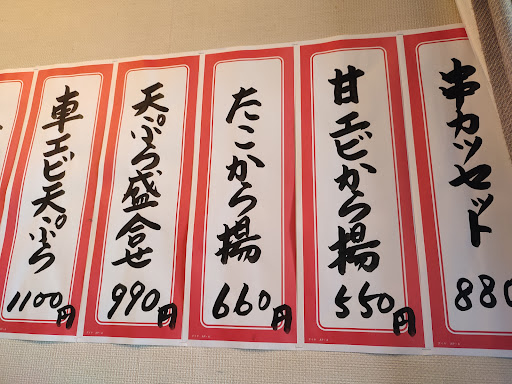 串カツセット
880
甘エビから揚
550円
たこから揚
660円
天ぷら盛合せ
990円
車エビ天ぷら
1100円